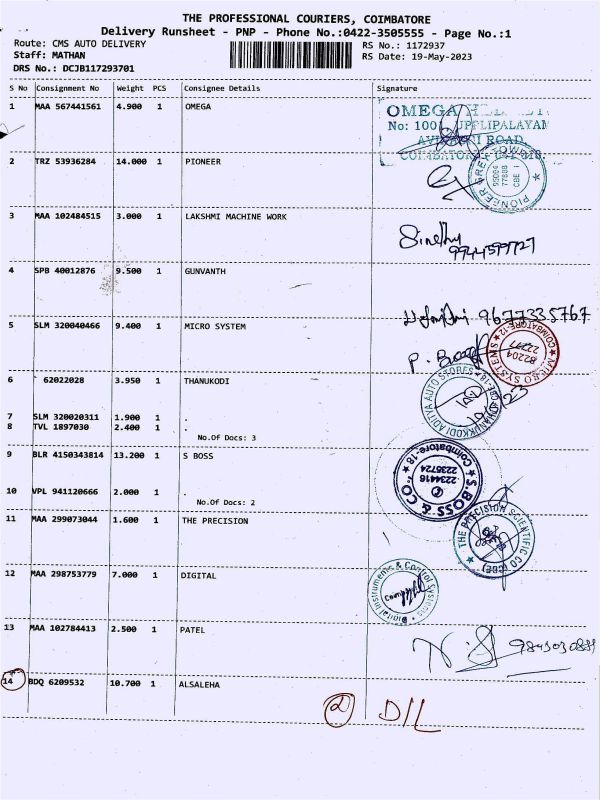 THE PROFESSIONAL COURIERS, COIMBATORE
Delivery Runsheet - PNP - Phone No.:0422-3505555 - Page No.:1
Route: CMS AUTO DELIVERY
Staff: MATHAN
DRS No.: DCJB117293701
RS No.: 1172937
RS Date: 19-May-2023
S No Consignment No Weight PCS Consignee Details Signature
1 MAA 567441561 4.900 1 OMEGA
OMEGA
No: 100, UPPLIPALAYAM
ROAD
2 TRZ 53936284 14.000 1 PIONEER
PIONEER
CBE
3 MAA 102484515 3.000 1 LAKSHMI MACHINE WORK
4 SPB 40012876 9.500 1 GUNVANTH
9677335767
5 SLM 320040466 9.400 1 MICRO SYSTEM
MICRO SYSTEMS
COIMBATORE-12
82204
22777
6 62022028 3.950 1 THANUKODI
DHANUKKODI ADITYA AUTO STORES
7 SLM 320020311 1.900 1 .
8 TVL 1897030 2.400 1 .
No.Of Docs: 3
9 BLR 4150343814 13.200 1 S BOSS
S.BOSS & CO
Coimbatore-18
2234416
2235724
10 VPL 941120666 2.000 1 .
No.Of Docs: 2
11 MAA 299073044 1.600 1 THE PRECISION
THE PRECISION SCIENTIFIC CO (CBE)
12 MAA 298753779 7.000 1 DIGITAL
Digital Instruments & Control Systems
13 MAA 102784413 2.500 1 PATEL
14 BDQ 6209532 10.700 1 ALSALEHA
D/L